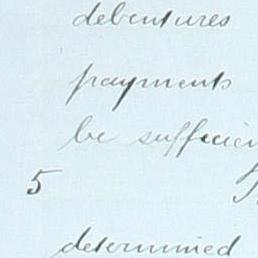 debentures
payments
be sufficien
5
determined